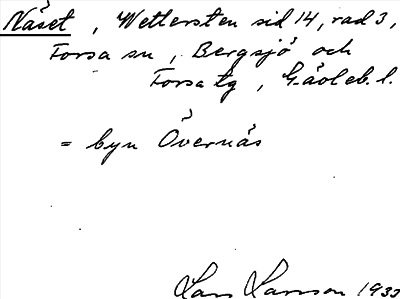 Näset, Wettersten sid 14, rad 3,
Forsa sn, Bergsjö och
Forsa tg, Gävleb. l.
= byn Övernäs
Lars Larsson 1933